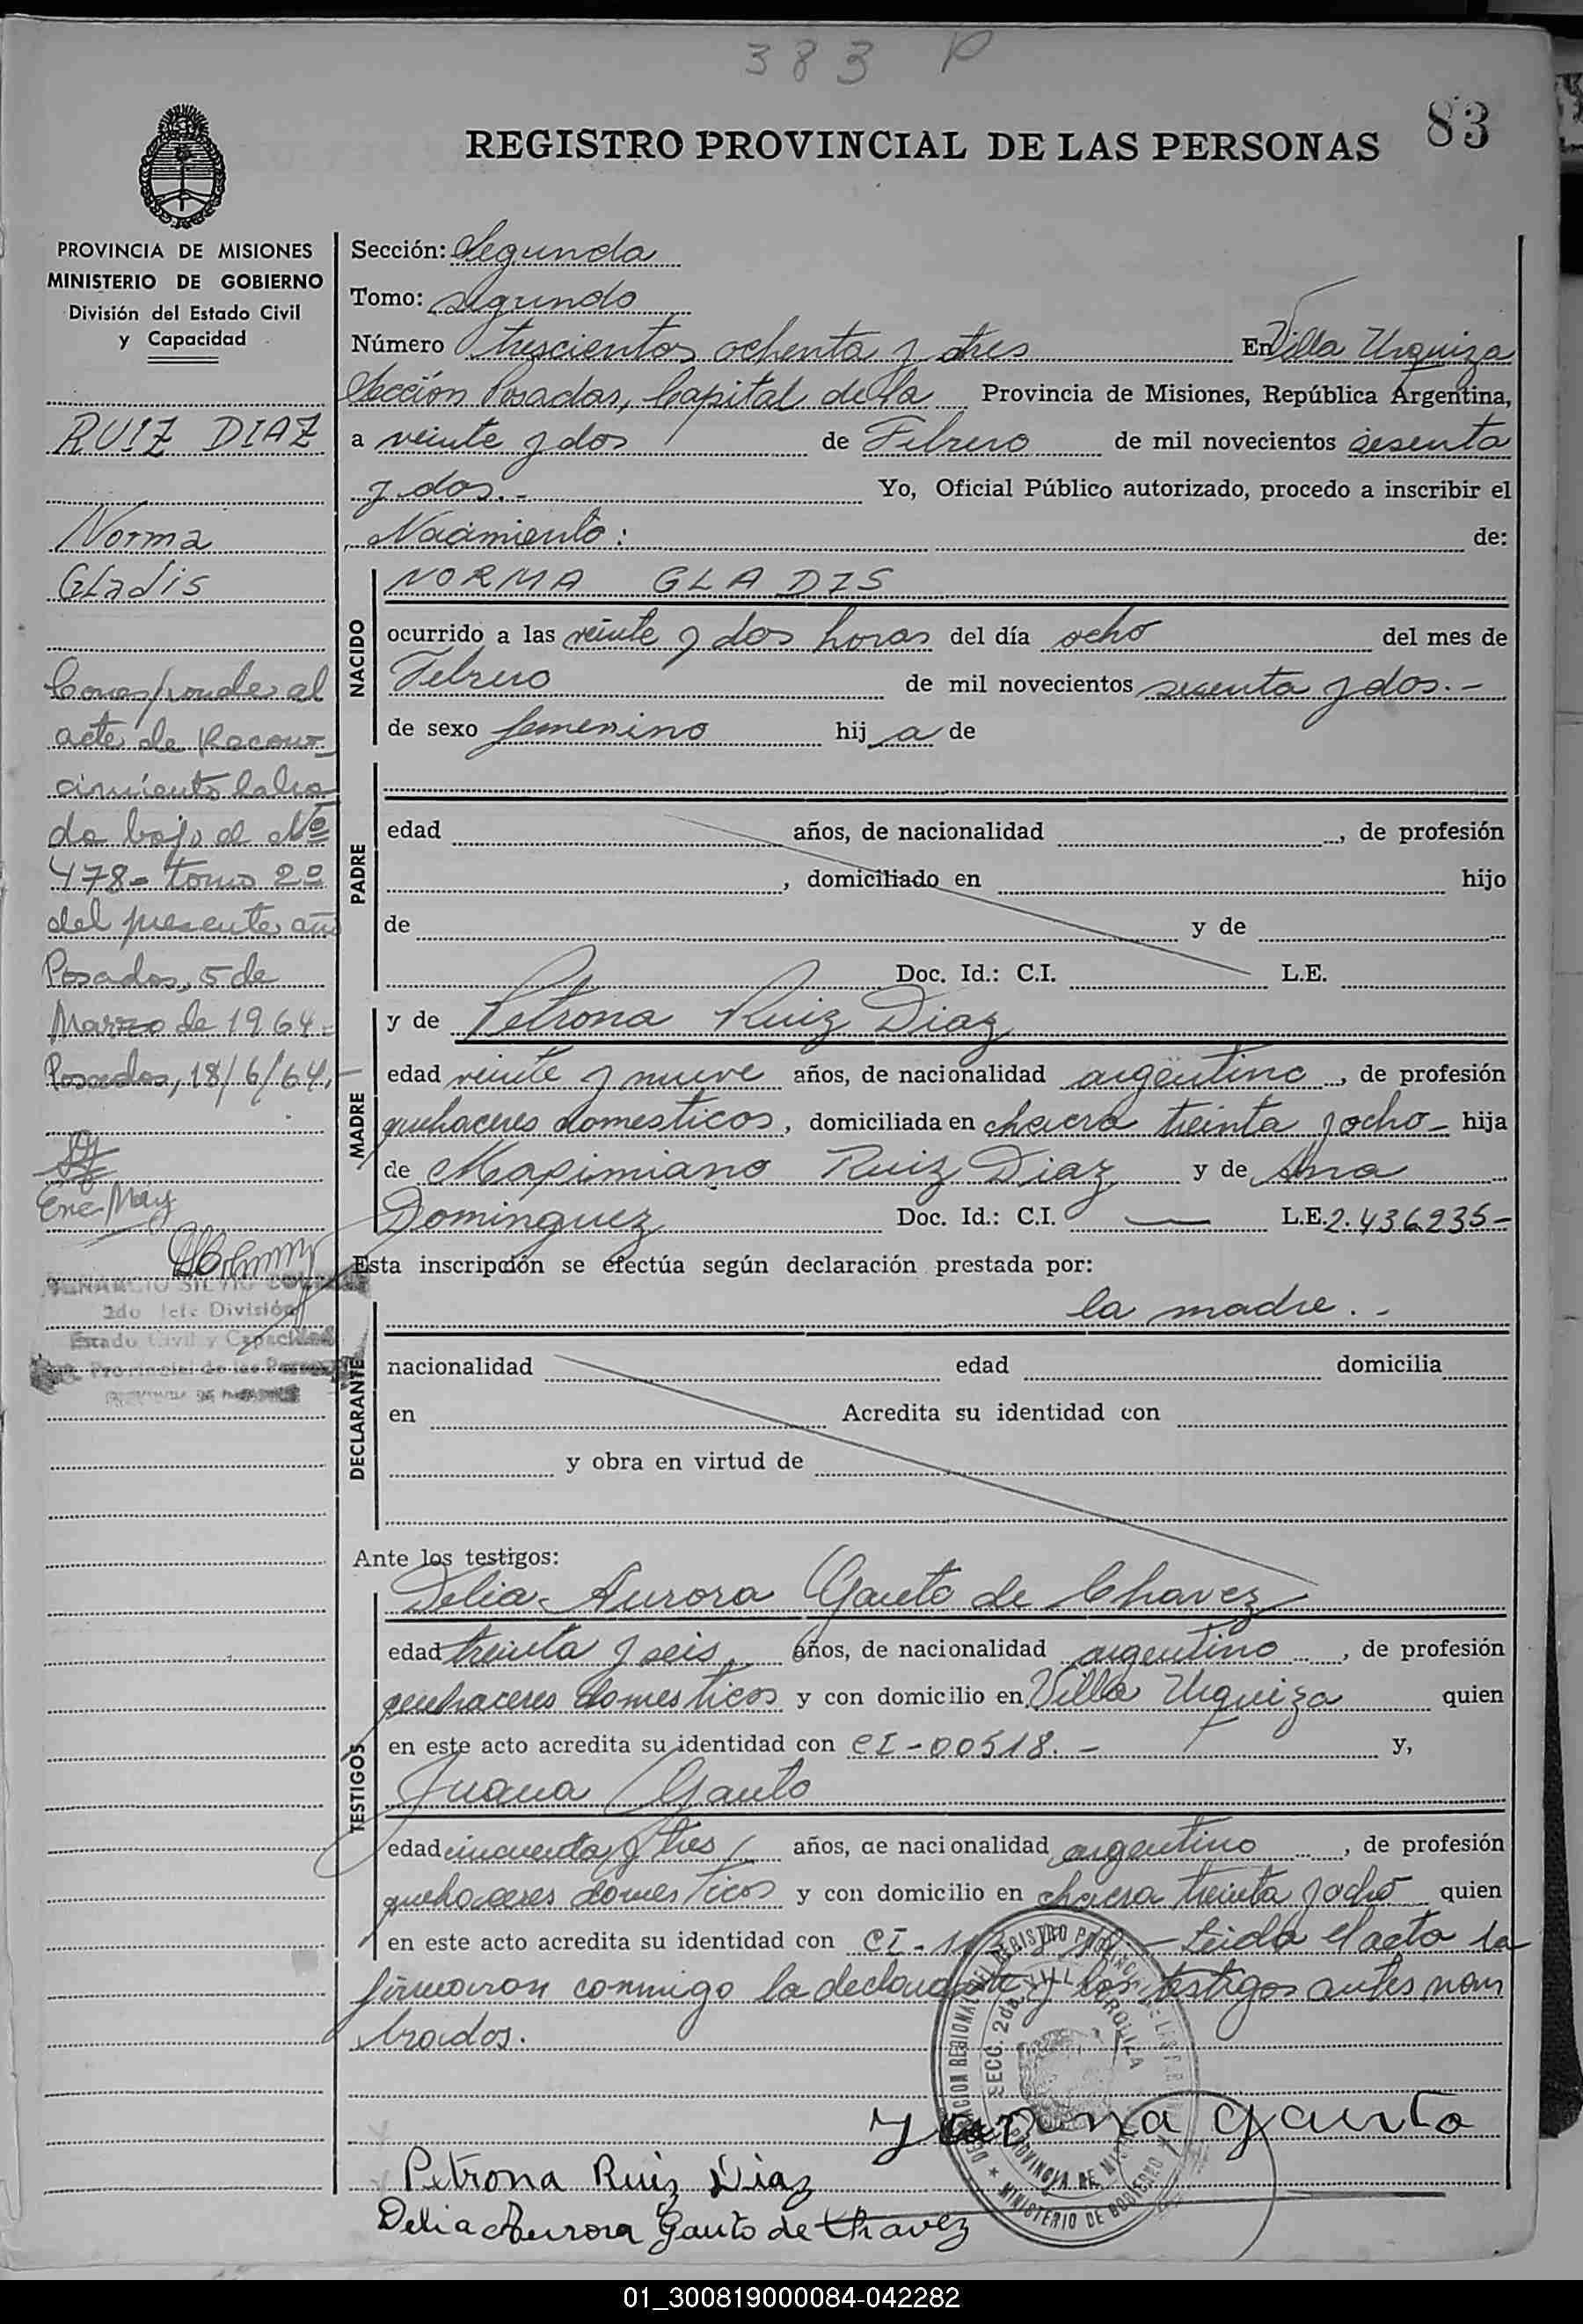 383 P
83
REGISTRO PROVINCIAL DE LAS PERSONAS
PROVINCIA DE MISIONES
MINISTERIO DE GOBIERNO
División del Estado Civil
y Capacidad
RUIZ DIAZ
Norma
Gladis
Corresponde al
acta de Recono-
cimiento labra
do bajo el Nº
478- tomo 2º
del presente año
Posadas, 5 de
Marzo de 1964.-
Posadas, 18/6/64.-
Ene-May
2do Jefe División
Estado Civil y Capacidad
Provincial de las Personas
Sección: Segunda
Tomo: segundo
Número trescientos ochenta y tres En Villa Urquiza
Sección Posadas, Capital de la Provincia de Misiones, República Argentina,
a veinte y dos de Febrero de mil novecientos sesenta
y dos.- Yo, Oficial Público autorizado, procedo a inscribir el
Nacimiento: de:
NACIDO
NORMA GLADIS
ocurrido a las veinte y dos horas del día ocho del mes de
Febrero de mil novecientos sesenta y dos.-
de sexo femenino hij a de
PADRE
edad años, de nacionalidad , de profesión
, domiciliado en hijo
de y de
Doc. Id.: C.I. L.E.
MADRE
y de Petrona Ruiz Diaz
edad veinte y nueve años, de nacionalidad argentina , de profesión
quehaceres domesticos , domiciliada en chacra treinta y ocho - hija
de Maximiano Ruiz Diaz y de Ana
Dominguez Doc. Id.: C.I. — L.E. 2.436.235-
Esta inscripción se efectúa según declaración prestada por:
DECLARANTE
la madre.-
nacionalidad edad domicilia
en Acredita su identidad con
y obra en virtud de
Ante los testigos:
TESTIGOS
Delia Aurora Gauto de Chavez
edad treinta y seis años, de nacionalidad argentino , de profesión
quehaceres domesticos y con domicilio en Villa Urquiza quien
en este acto acredita su identidad con CI-00518.- y,
Juana Gauto
edad cincuenta y tres años, de nacionalidad argentino , de profesión
quehaceres domesticos y con domicilio en chacra treinta y ocho quien
en este acto acredita su identidad con CI- - Leida el acta la
firmaron conmigo la declarante y los testigos antes nom
brados.
Juana Gauto
Petrona Ruiz Diaz
Delia Aurora Gauto de Chavez
01_300819000084-042282